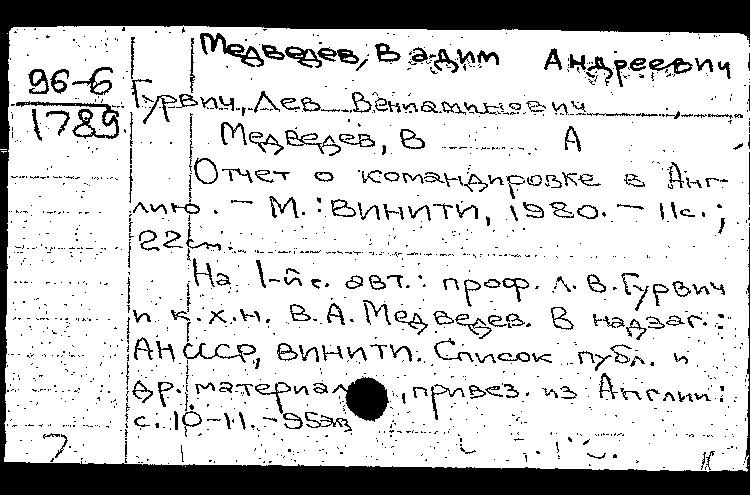 Медведев, Вадим Андреевич
96-6
1789
Гурвич, Лев Вениаминович
Медведев, В А
Отчет о командировке в Анг-
лию. - М.: ВИНИТИ, 1980. - 11с.;
22см.
На 1-й с. авт.: проф. Л.В. Гурвич
и к.х.н. В.А. Медведев. В надзаг.:
АН СССР, ВИНИТИ. Список публ. и
др. материал , привез. из Англии:
с. 10-11. - 95экз